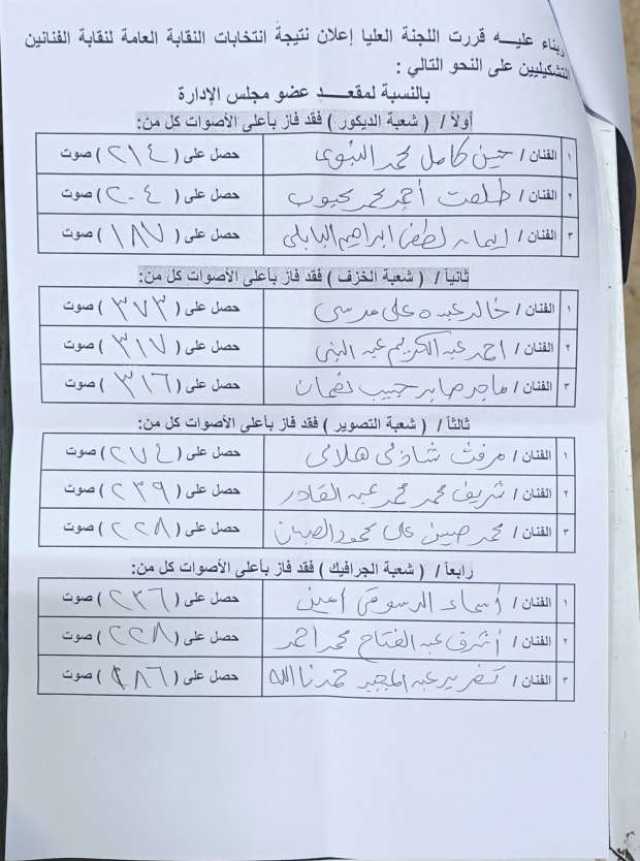 وبناء عليـــه قررت اللجنة العليا إعلان نتيجة انتخابات النقابة العامة لنقابة الفنانين
التشكيليين على النحو التالي :
بالنسبة لمقعــــد عضو مجلس الإدارة
أولاً / ( شعبة الديكور ) فقد فاز بأعلى الأصوات كل من:
١ الفنان / حسن كامل محمد النبوى حصل على ( ٢١٤ ) صوت
٢ الفنان / طلعت أحمد محمد محبوب حصل على ( ٢٠٤ ) صوت
٣ الفنان / إيمان لطفى ابراهيم البابلى حصل على ( ١٨٧ ) صوت
ثانياً / ( شعبة الخزف ) فقد فاز بأعلى الأصوات كل من:
١ الفنان / خالد عبده على مرسى حصل على ( ٣٧٣ ) صوت
٢ الفنان / احمد عبد الكريم عبد النبى حصل على ( ٣١٧ ) صوت
٣ الفنان / ماجد صابر حبيب نعمان حصل على ( ٣١٦ ) صوت
ثالثاً / ( شعبة التصوير ) فقد فاز بأعلى الأصوات كل من:
١ الفنان / مرفت شاذلى هلالى حصل على ( ٢٧٤ ) صوت
٢ الفنان / شريف محمد محمد عبد القادر حصل على ( ٢٣٩ ) صوت
٣ الفنان / محمد حسين على محمود حصل على ( ٢٢٨ ) صوت
رابعاً / ( شعبة الجرافيك ) فقد فاز بأعلى الأصوات كل من:
١ الفنان / أسماء الدسوقى أمين حصل على ( ٢٣٦ ) صوت
٢ الفنان / أشرف عبد الفتاح محمد احمد حصل على ( ٢٢٨ ) صوت
٣ الفنان / عبد المجيد حمدنا الله حصل على ( ١٨٦ ) صوت